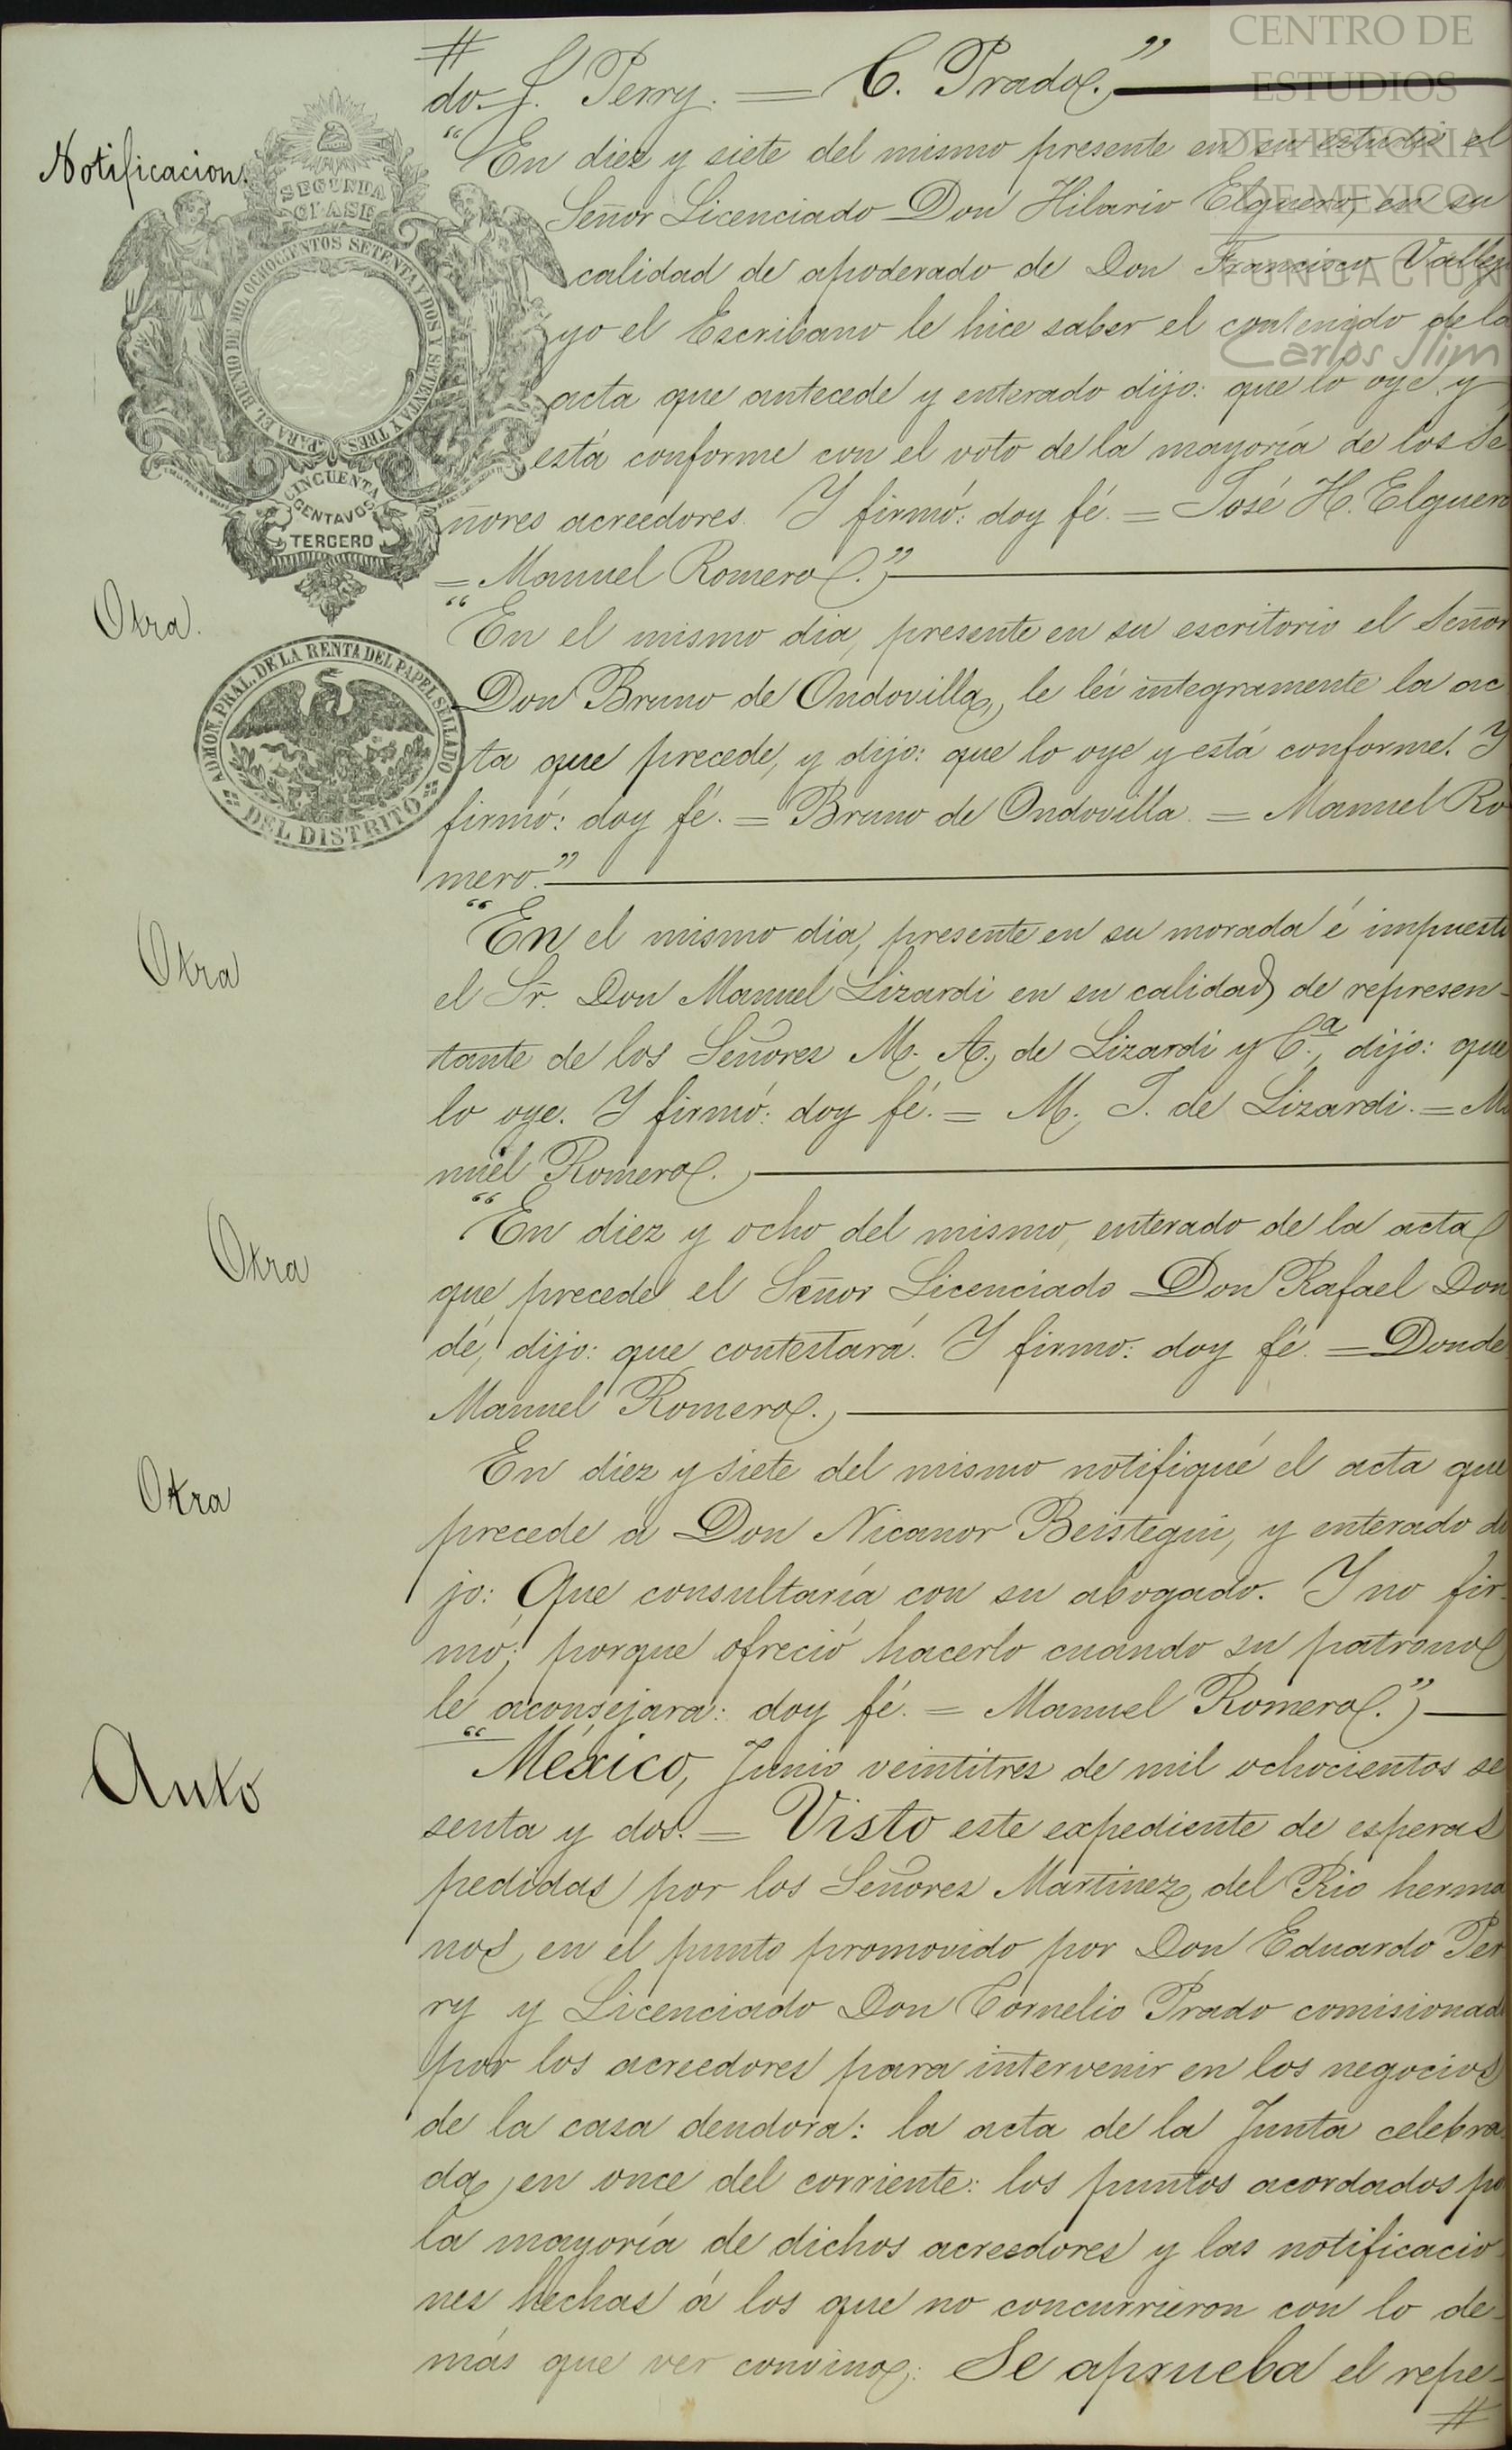 CENTRO DE
ESTUDIOS
DE HISTORIA
DE MEXICO
FUNDACION
Carlos Slim
#
do. J. Perry. = C. Prado."
Notificacion.
"En diez y siete del mismo presente en su estudio el
Señor Licenciado Don Hilario Elguero, en su
calidad de apoderado de Don Francisco Vallejo
yo el Escribano le hice saber el contenido de la
acta que antecede y enterado dijo: que lo oye y
está conforme con el voto de la mayoría de los Se
ñores acreedores. Y firmó: doy fé. = José H. Elguero
= Manuel Romero."
SEGUNDA
CLASE
PARA EL BIENIO DE MIL OCHOCIENTOS SETENTA Y DOS Y SETENTA Y TRES
CINCUENTA
CENTAVOS
TERCERO
Otra.
"En el mismo dia, presente en su escritorio el Señor
Don Bruno de Ondovilla, le leí integramente la ac
ta que precede, y dijo: que lo oye y está conforme. Y
firmó: doy fé. = Bruno de Ondovilla. = Manuel Ro
mero."
ADMON. PRAL. DE LA RENTA DEL PAPEL SELLADO
DEL DISTRITO
Otra
"En el mismo dia, presente en su morada é impuesto
el Sr. Don Manuel Lizardi en su calidad de represen-
tante de los Señores M. A. de Lizardi y Cª., dijo: que
lo oye. Y firmó: doy fé. = M. J. de Lizardi. = Ma
nuel Romero.
Otra
"En diez y ocho del mismo, enterado de la acta
que precede el Señor Licenciado Don Rafael Don
dé, dijo: que contestará. Y firmo: doy fé. = Donde
Manuel Romero.
Otra
En diez y siete del mismo notifiqué el acta que
precede á Don Nicanor Beistegui, y enterado di
jo: Que consultaría con su abogado. Y no fir-
mó; porque ofreció hacerlo cuando su patrono
le aconsejara: doy fé. = Manuel Romero."
Auto
"México, Junio veintitres de mil ochocientos se
senta y dos. = Visto este expediente de esperas
pedidas por los Señores Martinez del Rio herma
nos, en el punto promovido por Don Eduardo Per
ry y Licenciado Don Cornelio Prado comisionado
por los acreedores para intervenir en los negocios
de la casa deudora: la acta de la Junta celebra
da en once del corriente: los puntos acordados po
la mayoría de dichos acreedores y las notificacio
nes hechas á los que no concurrieron con lo de-
más que ver convino: Se aprueba el repe-
#